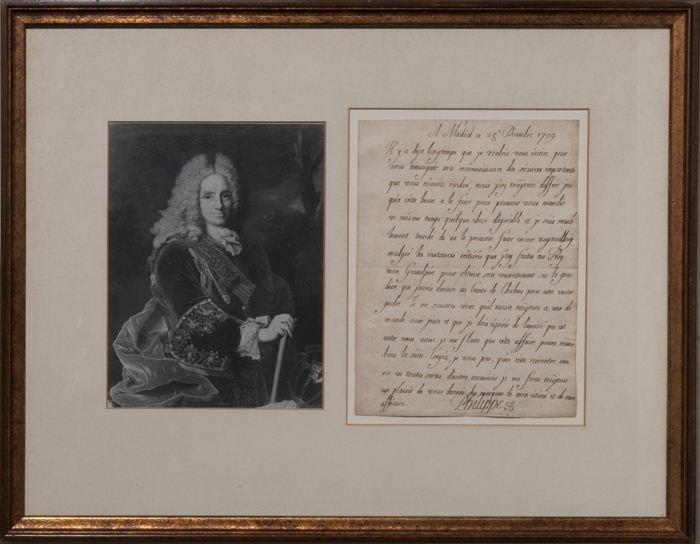 A Madrid ce 28e Decembre 1709
Il y a deja longtemps que je voulois vous écrire pour
vous temoigner ma reconnoissance des services importants
que vous m'avez rendus, mais j'ay toujours differé jus
qu'a cette heure a le faire pour pouvoir vous mander
en mesme temps quelque chose d'agreable et je suis
touché de ne le pouvoir faire encore aujourdhuy
malgré les instances réitérées que j'ay faites au Roy
mon Grandpere pour obtenir son consentement sur la gran
que j'aurois donné au
Je ne sçaurois croire quil resiste toujours a une de
mande aussi juste et que je dois esperer de l'amitié qui est
entre nous ainsi je me flate que cette affaire poura réüssir
dans la suite je vous prie, quen cette rencontre com
me en toutes sortes d'autres occasions je me feray toujours
un plaisir de vous donner des marques de mon estime et de mon
affection. Philippe